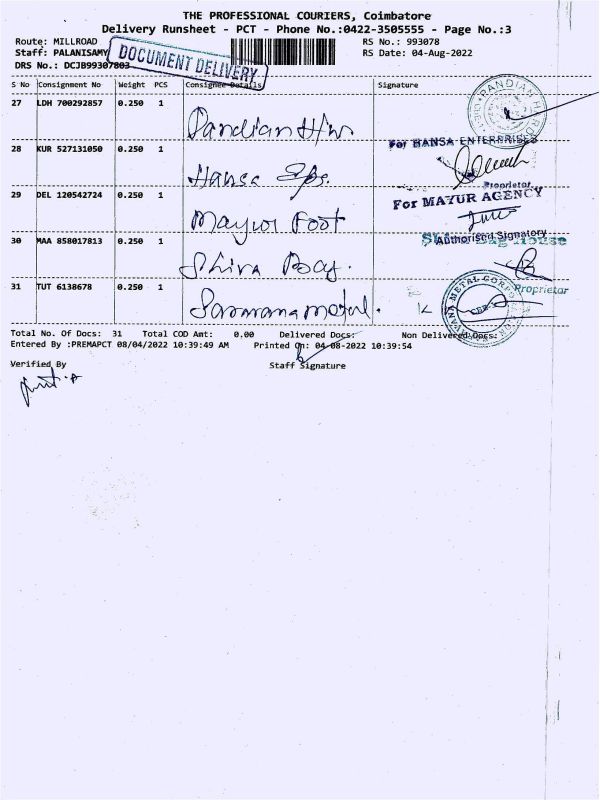 THE PROFESSIONAL COURIERS, Coimbatore
Delivery Runsheet - PCT - Phone No.:0422-3505555 - Page No.:3
Route: MILLROAD RS No.: 993078
Staff: PALANISAMY RS Date: 04-Aug-2022
DRS No.: DCJB99307803
DOCUMENT DELIVERY
S No Consignment No Weight PCS Consignee Details Signature
27 LDH 700292857 0.250 1 Pandian H/w
28 KUR 527131050 0.250 1 Hansa Eps.
For HANSA ENTERPRISES
Proprietor
29 DEL 120542724 0.250 1 Mayur Foot
For MAYUR AGENCY
Authorised Signatory
30 MAA 858017813 0.250 1 Shiva Bag.
Proprietor
31 TUT 6138678 0.250 1 Saravana metal.
METAL CORPO
Total No. Of Docs: 31 Total COD Amt: 0.00 Delivered Docs: Non Delivered Docs:
Entered By :PREMAPCT 08/04/2022 10:39:49 AM Printed On: 04-08-2022 10:39:54
Verified By Staff Signature